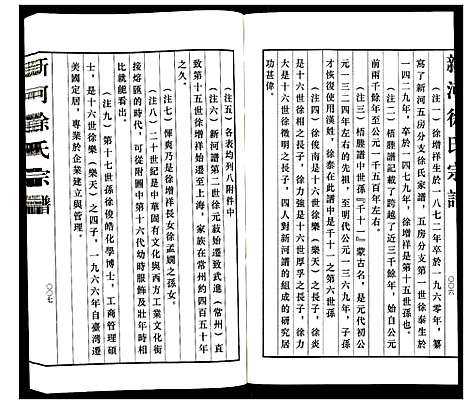 新河徐氏宗譜
（註一）徐增祥生於一八七二年卒於一九六零年，纂
寫了新河五房分支徐氏家譜，五房分支第一世徐泰生於
一四二九年，卒於一四七九年，徐增祥是第十五世孫也。
（註二）梧塍譜記載了跨越了近三十世徐氏，年代為
前兩千餘年至公元一千五百年左右。
（註三）梧塍譜中世孫『千十一』蒙古名，是元代初公
元一三二四年左右的先祖，至明代公元一三六九年，子孫
才恢復使用漢姓，徐泰在此譜中是千十一之第六世孫。
（註四）徐俊南是十六世徐樂（樂天）之長子，徐炎
是十六世徐相之長子，徐力強是十六世厚孚之長子，徐力
大是十六世徐微明之長子，四人對新河譜的組成的研究居
功甚偉。
〇〇六
（註五）各表均列八附件中
（註六）新河譜第二世徐元敍始遷致武進（常州）直
致第十五世徐增祥始遷至上海，家族在常州約四百五十年
之久。
（註七）惲爽乃是徐增祥長女徐孟嫻之孫女。
（註八）二十世紀是中華固有文化與西方工業文化銜
接熔匯的時代，可從附圖中第十六代幼時服飾及壯年時相
比就能看出。
（註九）第十七世孫徐俊皓化學博士，工商管理碩
士，是十六世徐樂（樂天）之四子，一九六六年自臺灣遷
美國定居，專業於企業建立與管理。
新河徐氏宗譜
〇〇七